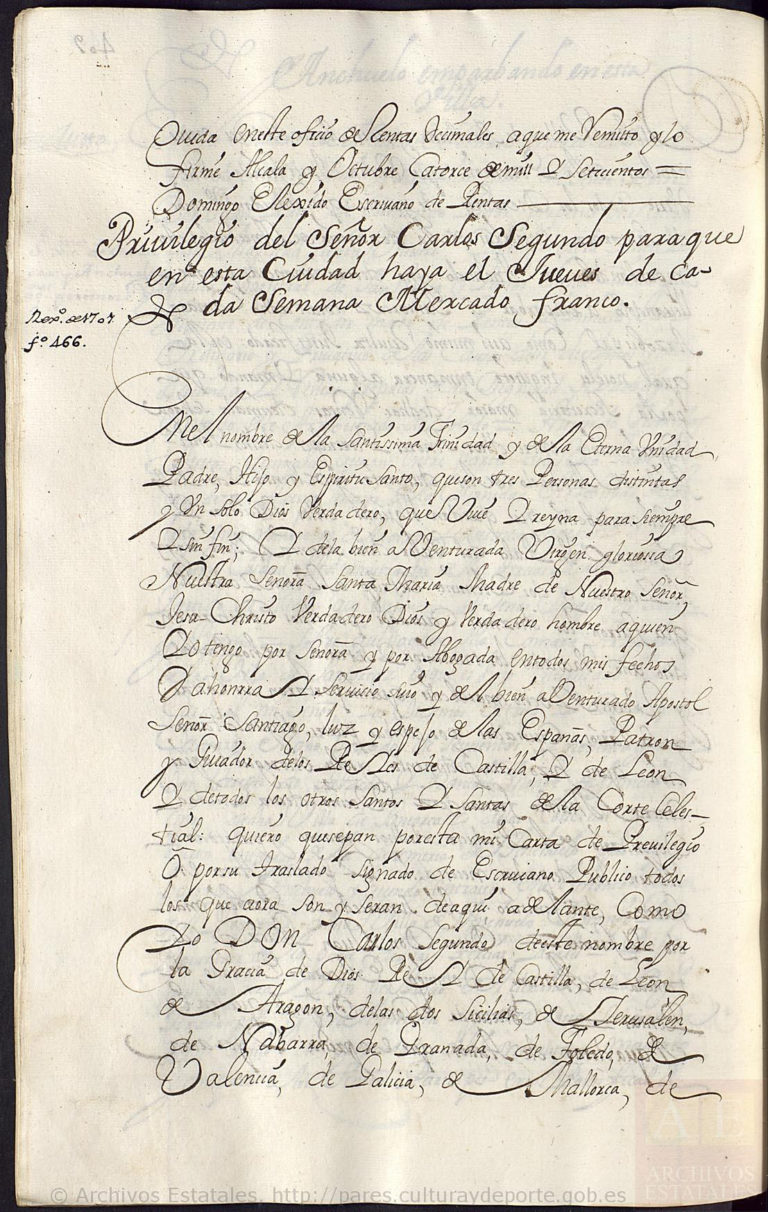 Queda en este oficio de Rentas Decimales, a que me remito y lo
firmè Alcala y Octubre Catorce de mill y Setecientos =
Domingo Elexido Escrivano de Rentas
Privilegio del Señor Carlos Segundo para que
en esta Ciudad haya el Jueves de Ca-
da Semana Mercado franco.
fº 466.
En el nombre de la Santissima Trinidad y de la Eterna Vnidad
Padre, Hijo y Espiritu Santo, que son tres Personas distintas
y Vn Solo Dios Verdadero, que Vive Y reyna para siempre
Y sin fin; Y de la bien aVenturada Virgen gloriossa
Nuestra Señora Santa Maria Madre de Nuestro Señor
Jesu-Christo Verdadero Dios y Verdadero hombre, a quien
Yo tengo por Señora y por Abogada en todos mis fechos
Y a honrra Y Servicio suio y del bien aVenturado Apostol
Señor Santiago, luz y espejo de las Españas, Patron
y Guiador de los Reyes de Castilla, Y de Leon
Y de todos los otros Santos Y Santas de la Corte Celes-
tial: quiero que sepan por esta mi Carta de Previlegio
O por su traslado Signado de Escriviano Publico todos
los que aora son y seran de aqui adelante, Como
Yo DON Carlos Segundo de este nombre por
la Gracia de Dios Rey de Castilla, de Leon
de Aragon, de las dos Sicilias, de Jerusalen,
de Nabarra, de Granada, de Toledo, de
Valencia, de Galicia, de Mallorca, de
© Archivos Estatales, http://pares.culturaydeporte.gob.es
AE
ARCHIVOS
ESTATALES